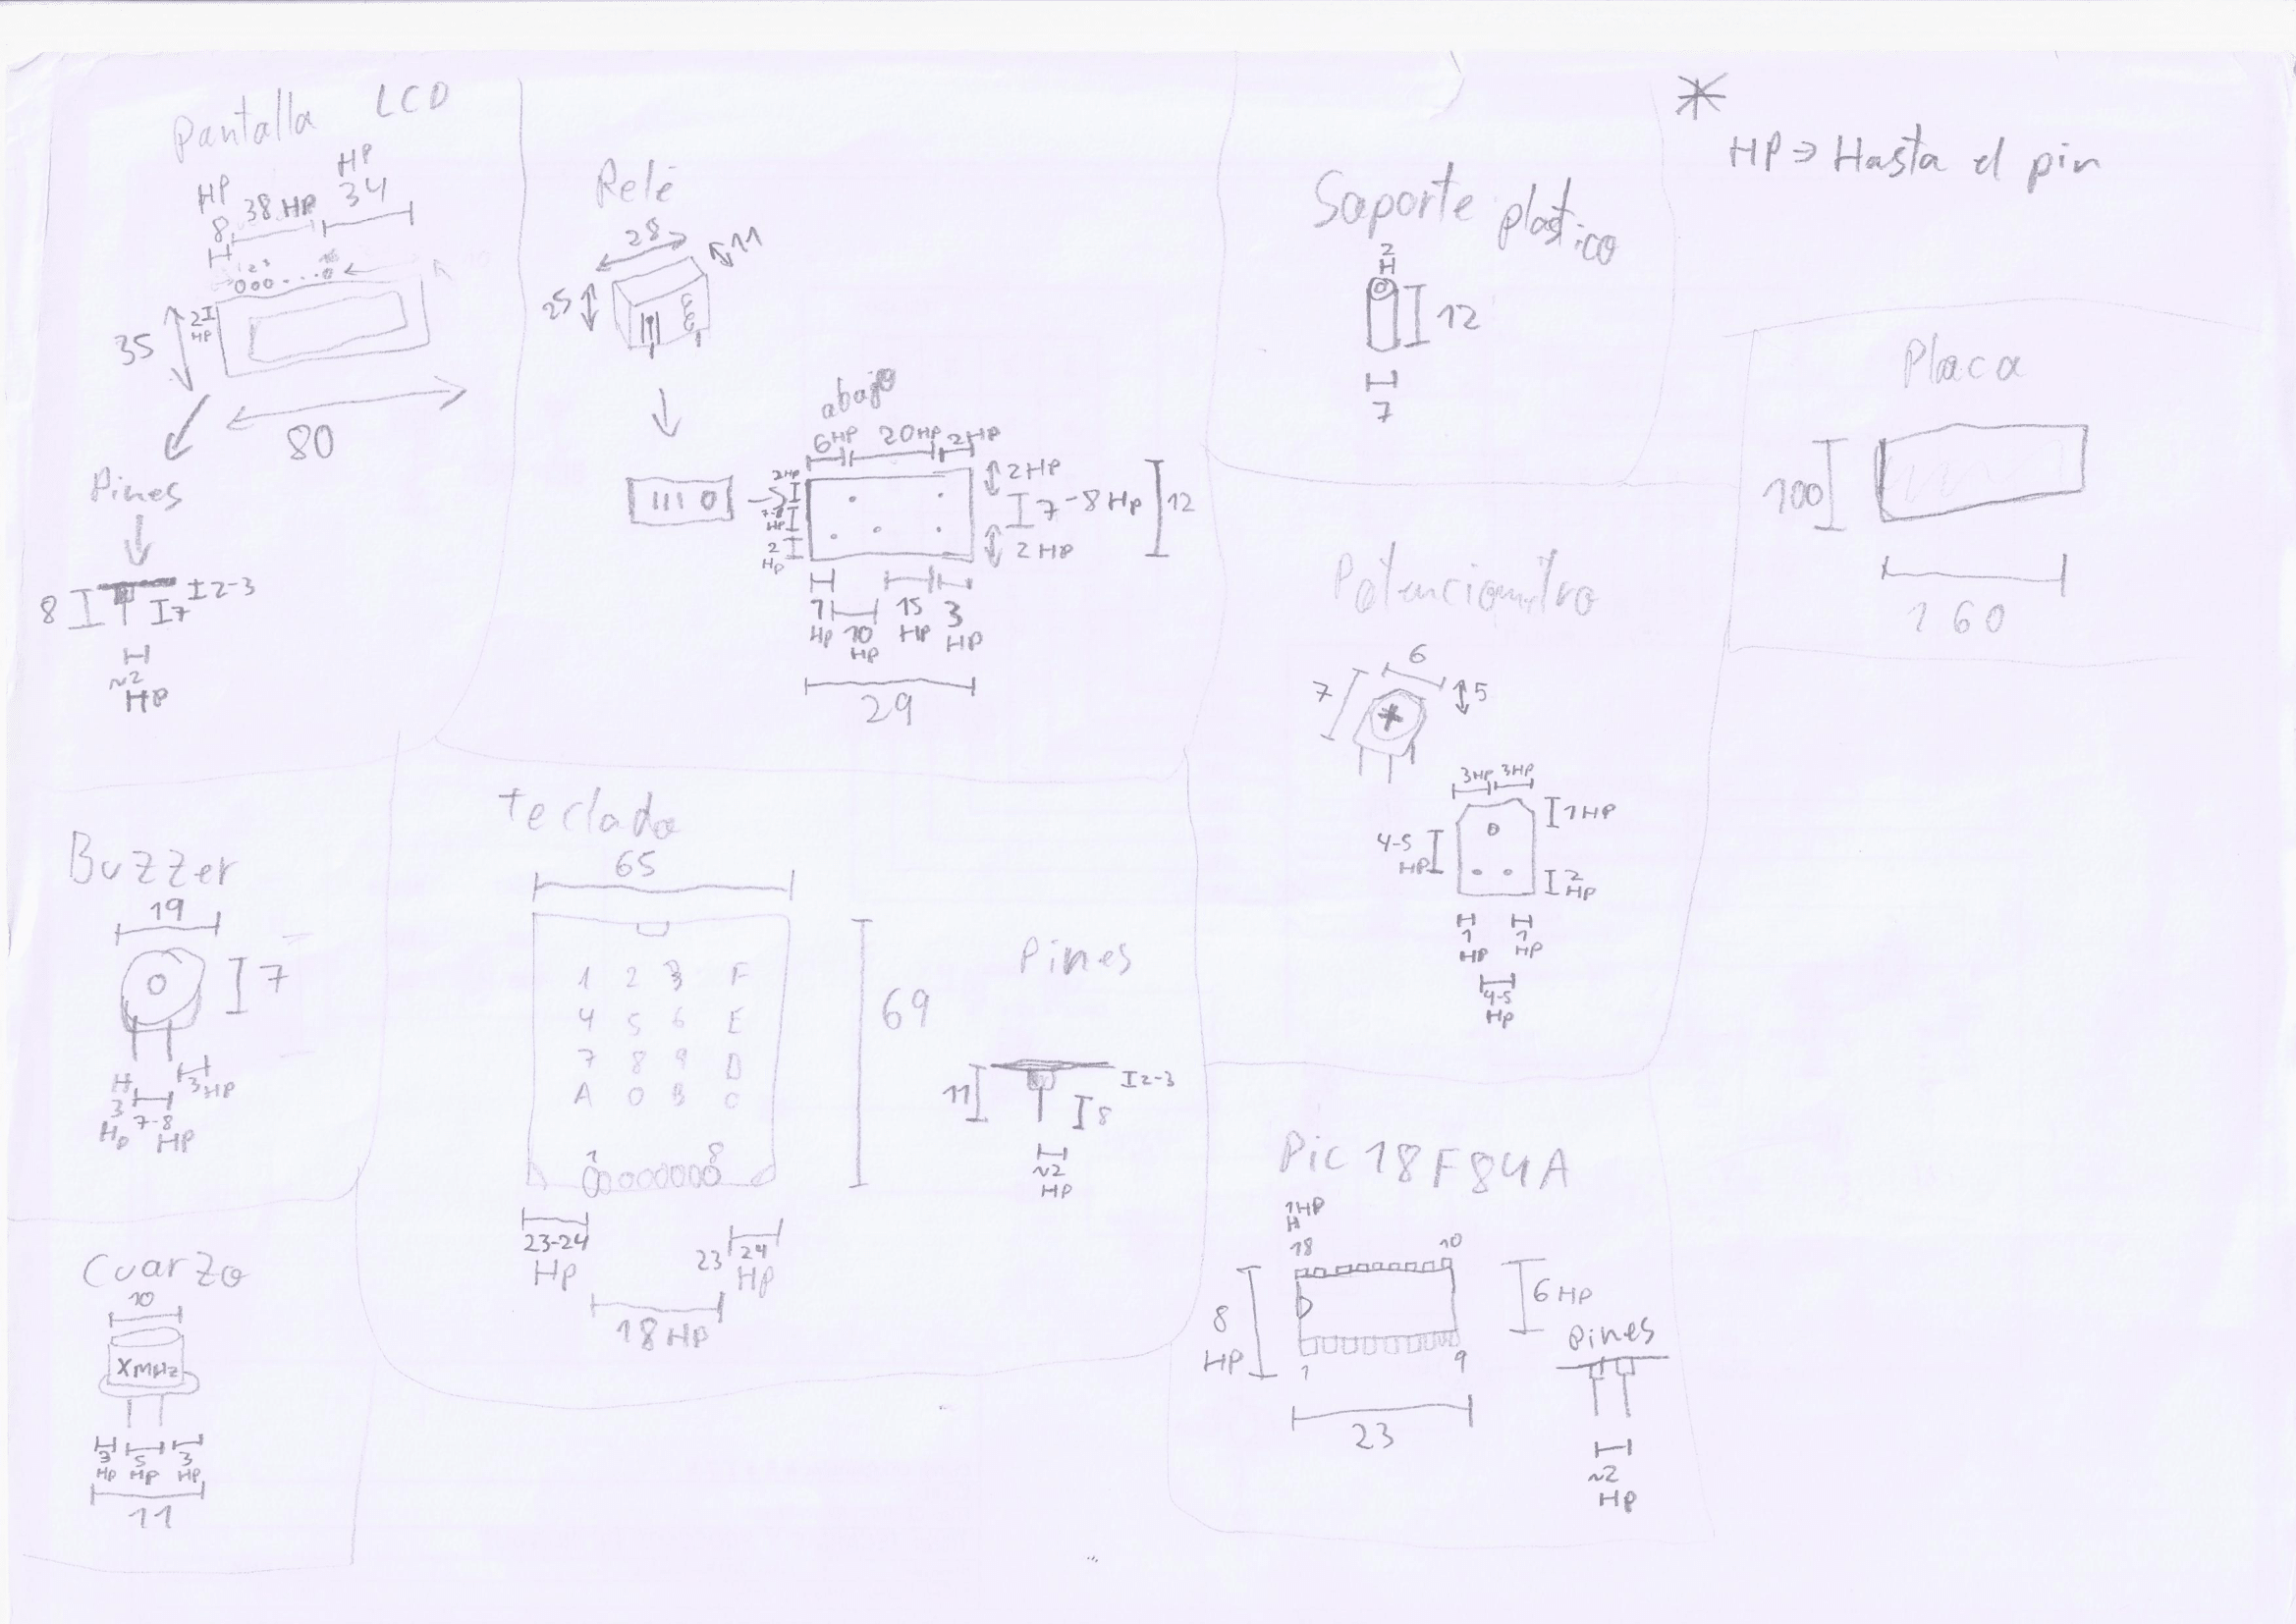 Pantalla LCD
HP
8
38 HP
HP
34
1 2 3 ... 16
35
2
HP
80
Pines
8
7
2-3
~2
HP
Relé
28
11
25
abajo
6HP 20HP 2HP
2HP
7-8
HP
2
HP
2HP
7-8 HP
2 HP
12
1
HP
10
HP
15
HP
3
HP
29
Soporte plástico
2
12
7
*
HP → Hasta el pin
Placa
100
160
Potenciometro
6
7
5
3HP 3HP
1HP
4-5
HP
2
HP
1
HP
1
HP
4-5
HP
Buzzer
19
7
3
HP
7-8
HP
3
HP
teclado
65
1 2 3 F
4 5 6 E
7 8 9 D
A 0 B C
1 8
69
23-24
HP
23
24
HP
18 HP
Pines
11
2-3
8
~2
HP
Cuarzo
10
XMHz
3
HP
5
HP
3
HP
11
Pic 18F84A
1HP
18 10
8
HP
6 HP
1 9
23
Pines
~2
HP